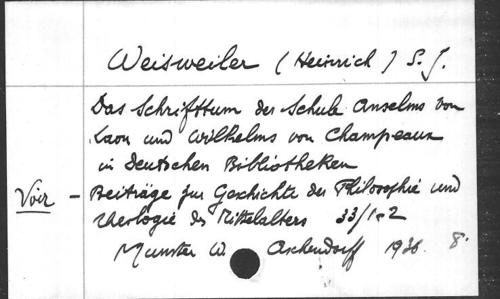 Weisweiler (Heinrich) S. J.
Das Schrifttum der Schule Anselms von
Laon und Wilhelms von Champeaux
in Deutschen Bibliotheken
Voir - Beiträge zur Geschichte der Philosophie und
Theologie des Mittelalters 33/1-2
Munster W. Aschendorff 1936 8°